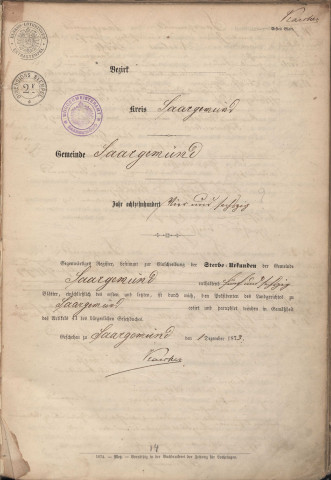 Erstes Blatt.
Bezirk
Kreis Saargemünd
Gemeinde Saargemünd
Jahr achtzehnhundert Vier und siebzig
Gegenwärtiges Register, bestimmt zur Einschreibung der Sterbe-Urkunden der Gemeinde
Saargemünd enthaltend fünf und siebzig
Blätter, einschließlich des ersten und letzten, ist durch mich, den Präsidenten des Landgerichts zu
Saargemünd cotirt und paraphirt worden in Gemäßheit
des Artikels 41 des bürgerlichen Gesetzbuches.
Geschehen zu Saargemünd den Dezember 1873.
14
1874. — Metz.